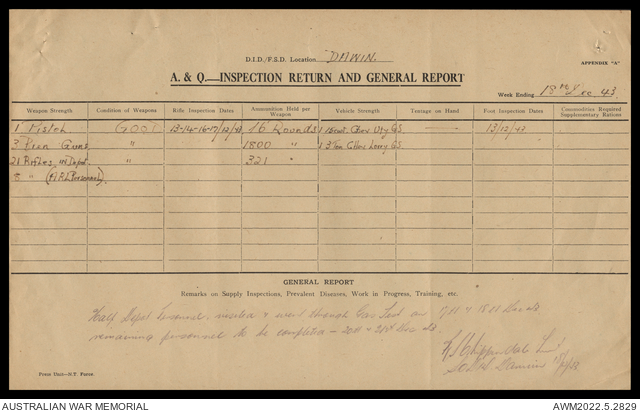 D.I.D./F.S.D. Location DAWIN.
APPENDIX "A"
A. & Q.—INSPECTION RETURN AND GENERAL REPORT
Week Ending 18th Dec 43
Weapon Strength Condition of Weapons Rifle Inspection Dates Ammunition Held per Weapon Vehicle Strength Tentage on Hand Foot Inspection Dates Commodities Required Supplementary Rations
1 Pistol GOOD 13-14-16-17/12/43 16 Rounds 13/12/43
3 Bren Guns " 1800 " 1 3 Ton Lorry G.S.
21 Rifles in Depot " 321 "
8 " Personnel)
GENERAL REPORT
Remarks on Supply Inspections, Prevalent Diseases, Work in Progress, Training, etc.
Half Depot Personnel went through Gas Test on 17th & 18th Dec 43
remaining personnel to be completed — 20th & 21st Dec 43.
Press Unit—N.T. Force.
AUSTRALIAN WAR MEMORIAL
AWM2022.5.2829